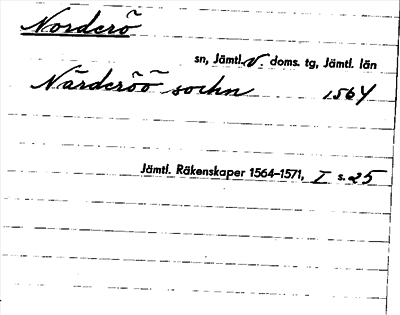 Norderö
sn, Jämtl. V. doms. tg, Jämtl. län
Närderöö sochn 1564
Jämtl. Räkenskaper 1564-1571, I s. 25